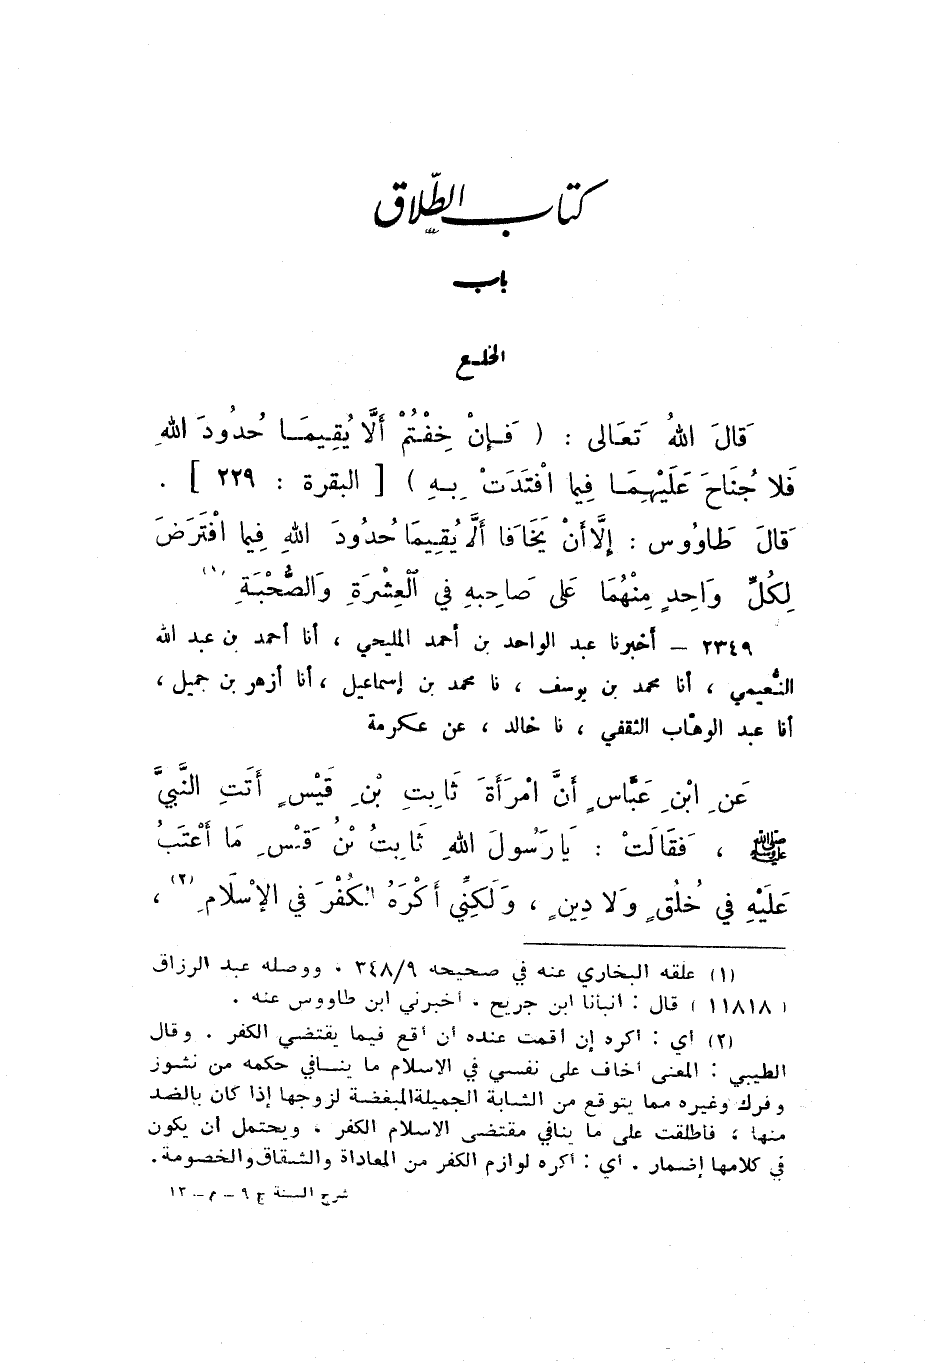 كتاب الطّلاق
باب
الخلع
قَالَ اللهُ تَعَالى : ( فَإِنْ خِفْتُمْ أَلَّا يُقِيمَا حُدُودَ اللهِ
فَلا جُنَاحَ عَلَيْهِمَا فِيمَا افْتَدَتْ بِهِ ) [ البقرة : ٢٢٩ ] .
قَالَ طَاوُوس : إِلَّا أَنْ يَخَافَا أَلَّا يُقِيمَا حُدُودَ اللهِ فِيمَا افْتَرَضَ
لِكُلِّ وَاحِدٍ مِنْهُمَا عَلى صَاحِبِهِ في الْعِشْرَةِ وَالصُّحْبَةِ (١)
٢٣٤٩ – أخبرنا عبد الواحد بن أحمد المليحي ، أنا أحمد بن عبد الله
النُّعيمي ، أنا محمد بن يوسف ، نا محمد بن إسماعيل ، أنا أزهر بن جميل ،
أنا عبد الوهّاب الثقفي ، نا خالد ، عن عكرمة
عَنِ ابْنِ عَبَّاسٍ أَنَّ امْرَأَةَ ثَابِتِ بْنِ قَيْسٍ أَتَتِ النَّبيَّ
ﷺ ، فَقَالَتْ : يَا رَسُولَ اللهِ ثَابِتُ بْنُ قَيْسٍ مَا أَعْتَبُ
عَلَيْهِ في خُلُقٍ وَلا دِينٍ ، وَلَكِنِّي أَكْرَهُ الكُفْرَ في الإِسْلَامِ (٢) ،
(١) علقه البخاري عنه في صحيحه ٣٤٨/٩ . ووصله عبد الرزاق
( ١١٨١٨ ) قال : أنبأنا ابن جريح ، أخبرني ابن طاووس عنه .
(٢) أي : أكره إن أقمت عنده أن أقع فيما يقتضي الكفر . وقال
الطيبي : المعنى أخاف على نفسي في الاسلام ما ينافي حكمه من نشوز
وفرك وغيره مما يتوقع من الشابة الجميلة المبغضة لزوجها إذا كان بالضد
منها ، فأطلقت على ما ينافي مقتضى الاسلام الكفر . ويحتمل أن يكون
في كلامها إضمار . أي : أكره لوازم الكفر من المعاداة والشقاق والخصومة .
شرح السنة ج ٩ – م – ١٣